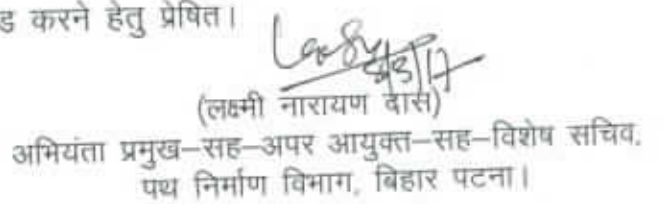 ड करने हेतु प्रेषित।
8/3/17
(लक्ष्मी नारायण दास)
अभियंता प्रमुख–सह–अपर आयुक्त–सह–विशेष सचिव,
पथ निर्माण विभाग, बिहार पटना।